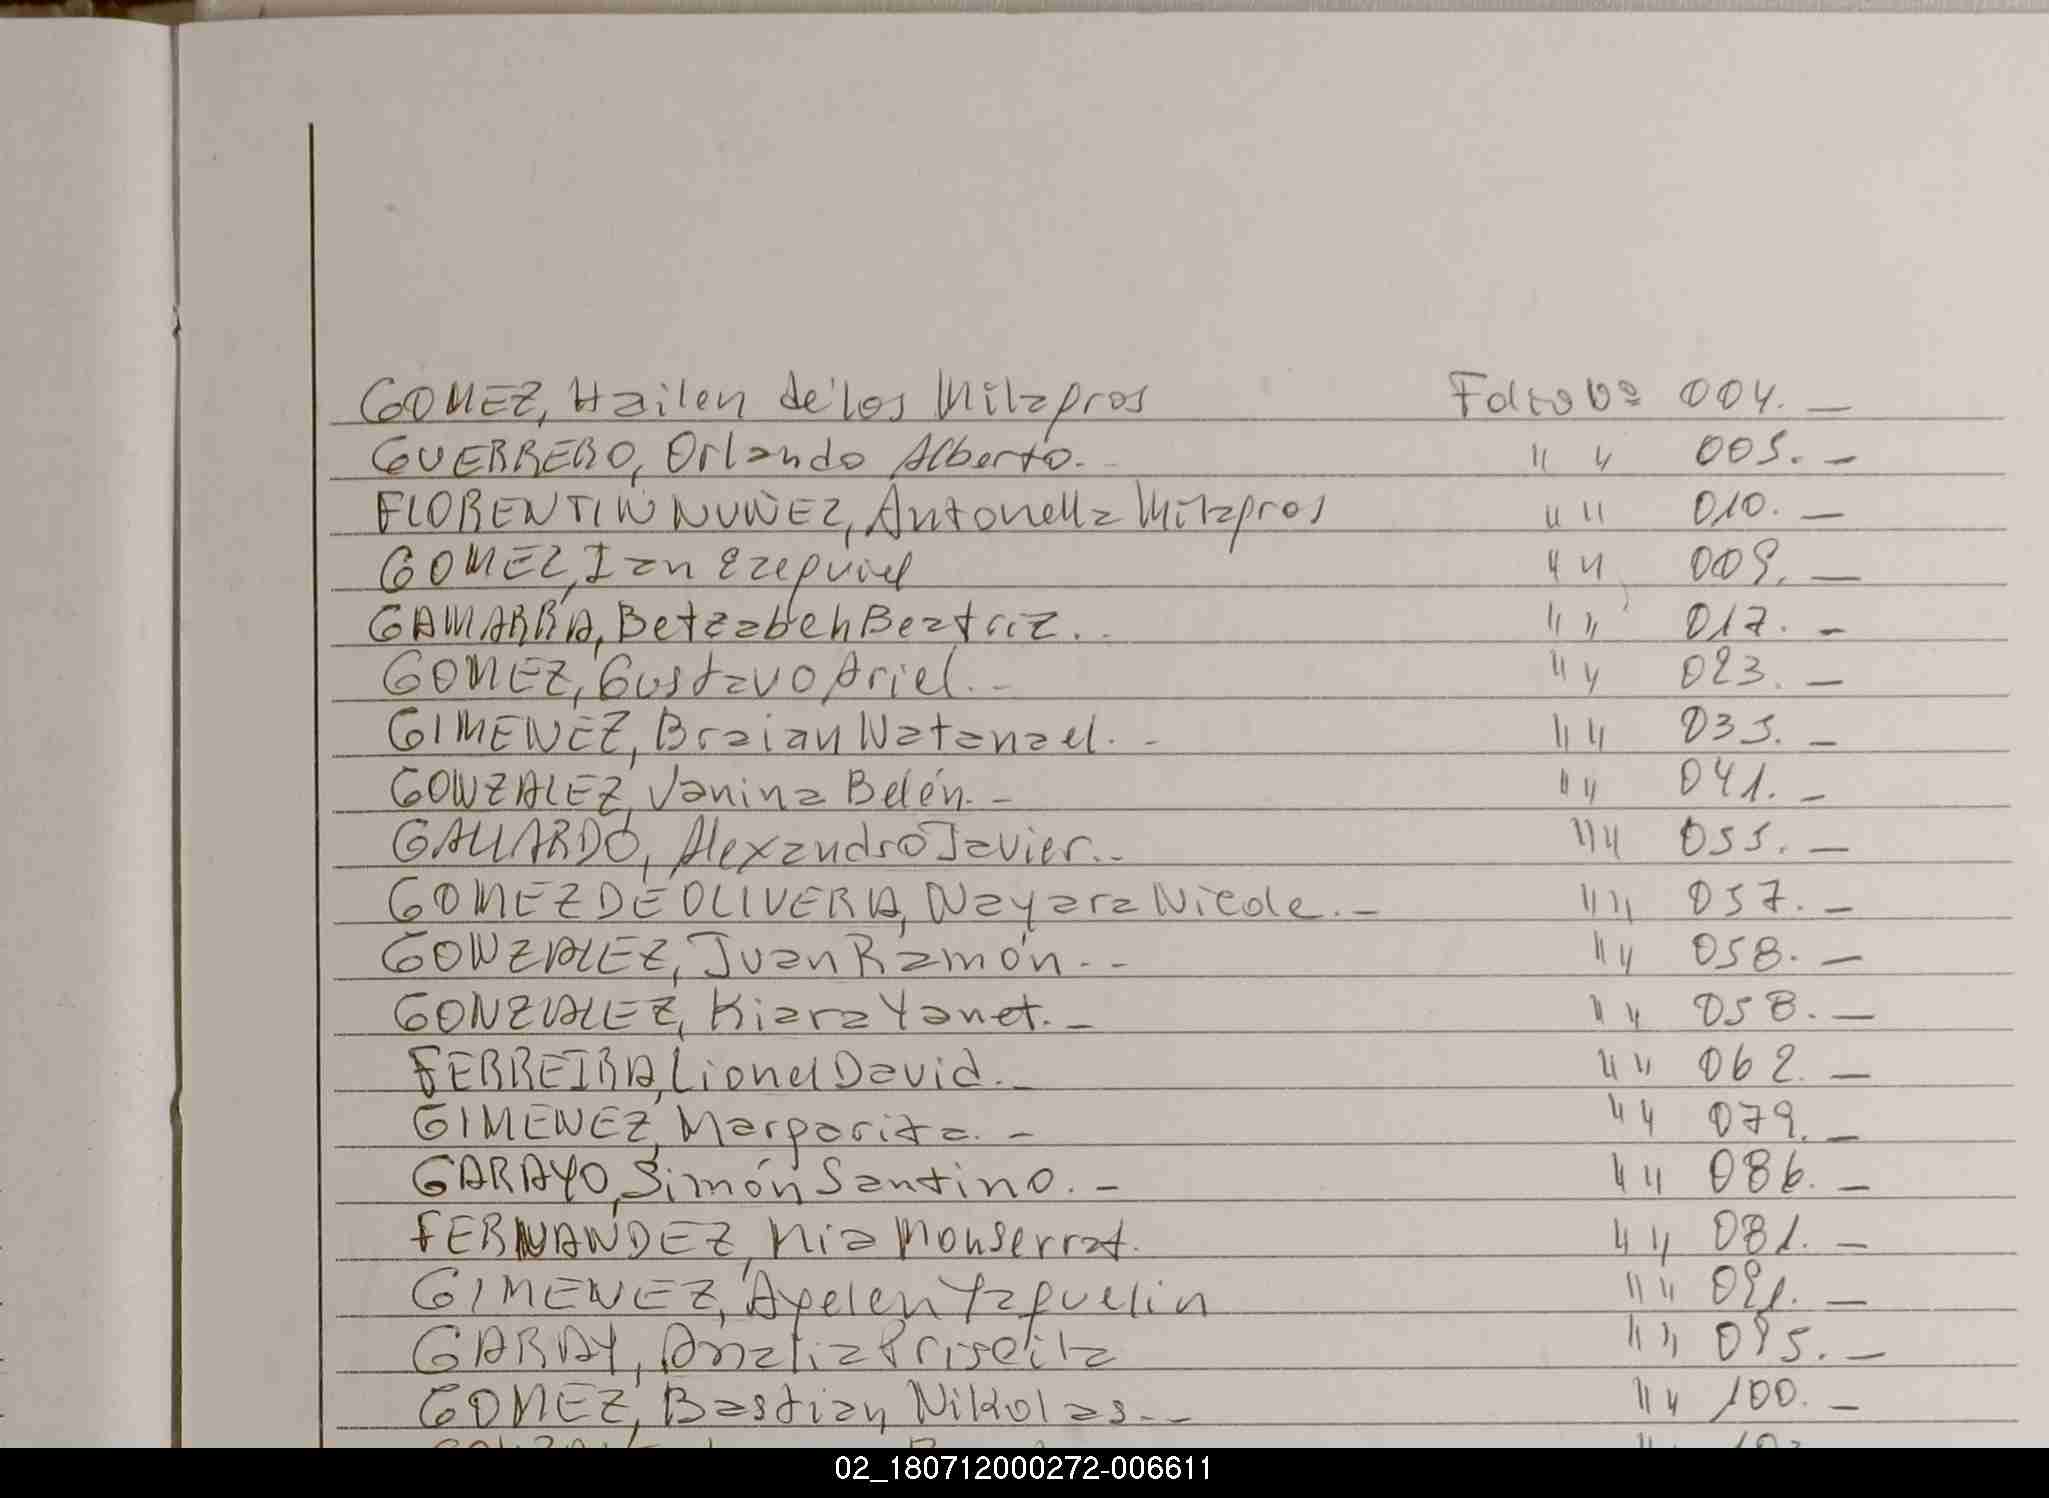 GOMEZ, Hailen de los Milagros Folio Nº 004. —
GUERRERO, Orlando Alberto. - " " 005. —
FLORENTIN NUÑEZ, Antonella Milagros " " 010. —
GOMEZ, Ian Ezequiel " " 009. —
GAMARRA, Betzabeh Beatriz. . " " 017. —
GOMEZ, Gustavo Ariel. - " " 023. —
GIMENEZ, Braian Natanael. - " " 035. —
GONZALEZ, Vanina Belén. - " " 041. —
GALLARDO, Alexandro Javier. - " " 055. —
GOMEZ DE OLIVERA, Nayara Nicole. - " " 057. —
GONZALEZ, Juan Ramón. - " " 058. —
GONZALEZ, Kiara Yanet. - " " 058. —
FERREIRA, Lionel David. - " " 062. —
GIMENEZ, Margarita. - " " 079. —
GARAYO, Simón Santino. - " " 086. —
FERNANDEZ, Mia Monserrat. " " 081. —
GIMENEZ, Ayelen Yaquelin " " 091. —
GARAY, Analia Priscila " " 095. —
GOMEZ, Bastian Nikolas. - " " 100. —
02_180712000272-006611